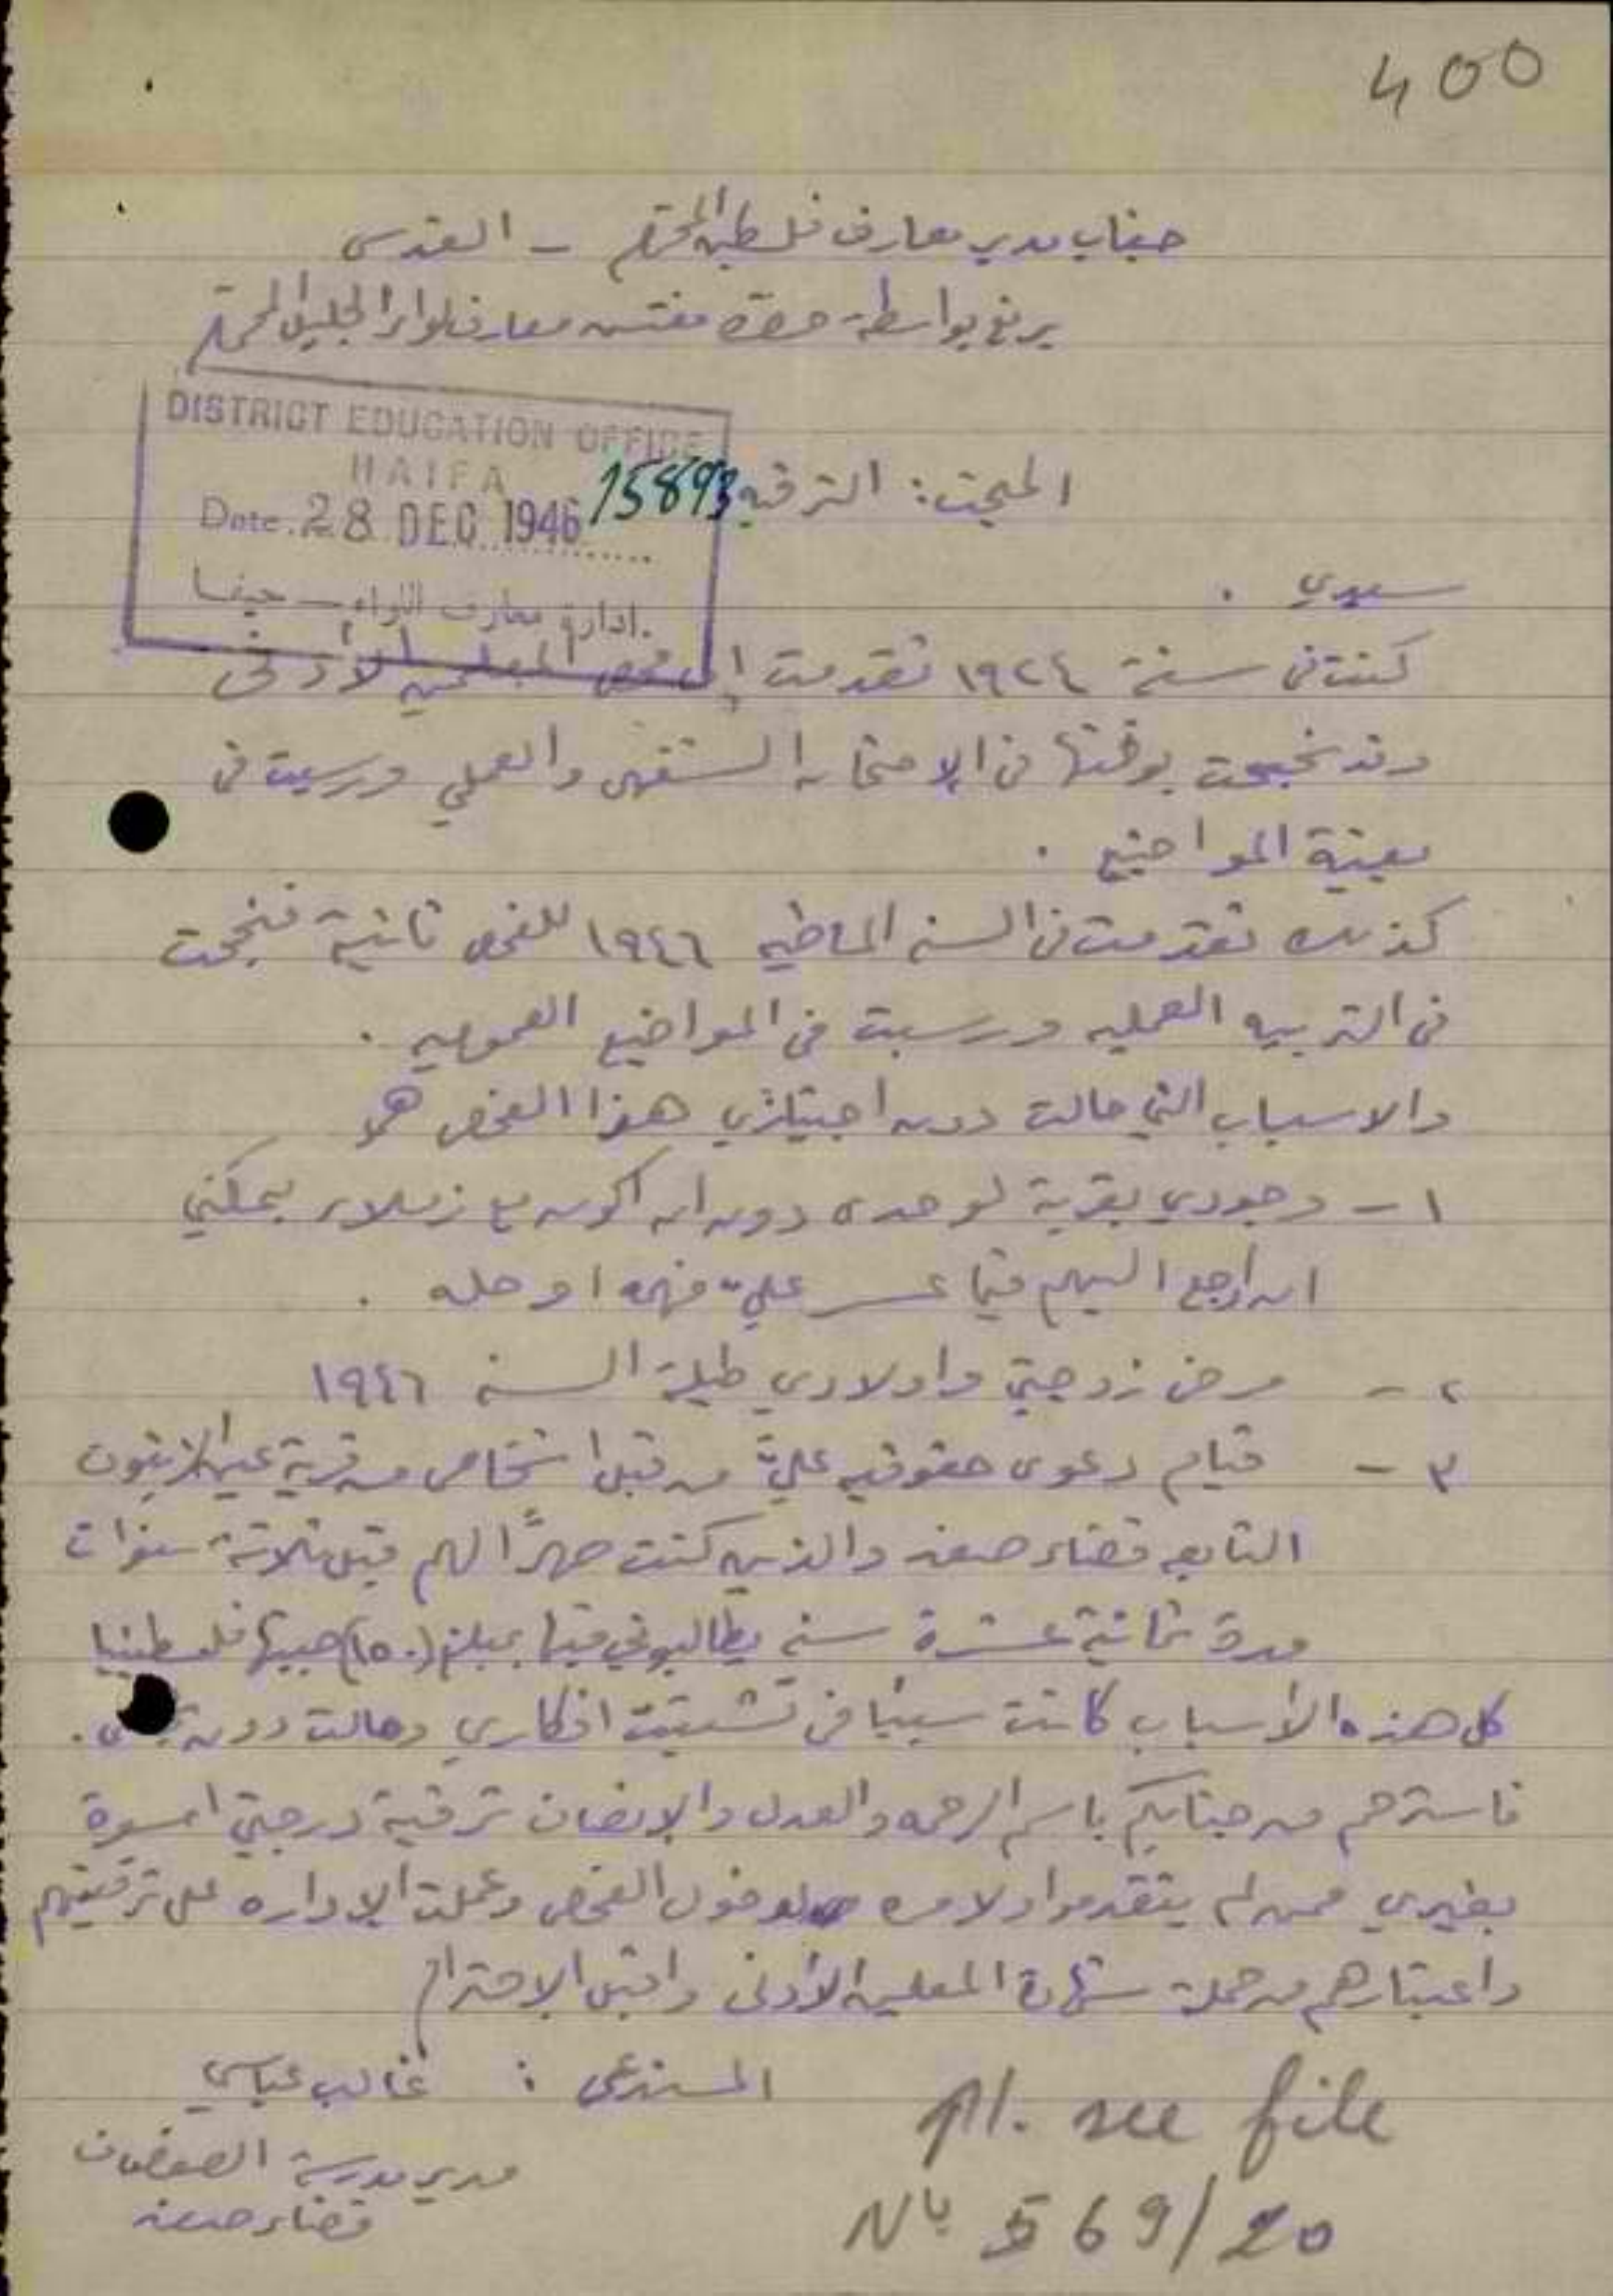 400
جناب مدير معارف فلسطين المحترم - القدس
يرفع بواسطة حضرة مفتش معارف لواء الجليل المحترم
DISTRICT EDUCATION OFFICE
HAIFA
Date. 28 DEC 1946
15893
ادارة معارف اللواء - حيفا
المبحث: الترقيه
سيدي .
كنت في سنة ١٩٢٤ تقدمت الى فحص المعلمين الأدنى
وقد نجحت بوقتها في الامتحان الشفهي والعملي ورسبت في
بعينة المواضيع .
كذلك تقدمت في السنه الماضيه ١٩٤٦ للفحص ثانية فنجحت
في التربيه العمليه ورسبت في المواضيع العموميه .
والاسباب التي حالت دون اجتيازي هذا الفحص هي
١ - وجودي بقرية لوحدى دون ان اكون مع زملاء يمكنني
ان اراجع اليهم فيما عسر عليّ فهمه او حله .
٢ - مرض زوجتي واولادي طيلة السنه ١٩٤٦
٣ - قيام دعوى حقوقيه عليّ من قبل اشخاص من قرية عين الزيتون
التابعه قضاء صفد والذين كنت صهرًا لهم قبل ثلاثة سنوات
مدة ثمانية عشرة سنه يطالبوني فيها بمبلغ (١٥٠) جنيها فلسطينيا
كل هذه الأسباب كانت سببا في تشتيت افكاري وحالت دون .
فاسترحم من جنابكم باسم الرحمه والعدل والإنصاف ترقية درجتي اسوة
بغيري ممن لم يتقدموا ولا مره لدخول الفحص وعملت الإداره على ترقيتهم
واعتبارهم من حملة شهادة المعلمين الأدنى واقبل الإحترام
المستدعي : غالب عباسي
مدير مدرسة الصفصاف
قضاء صفد
pl. see file
No 569/20